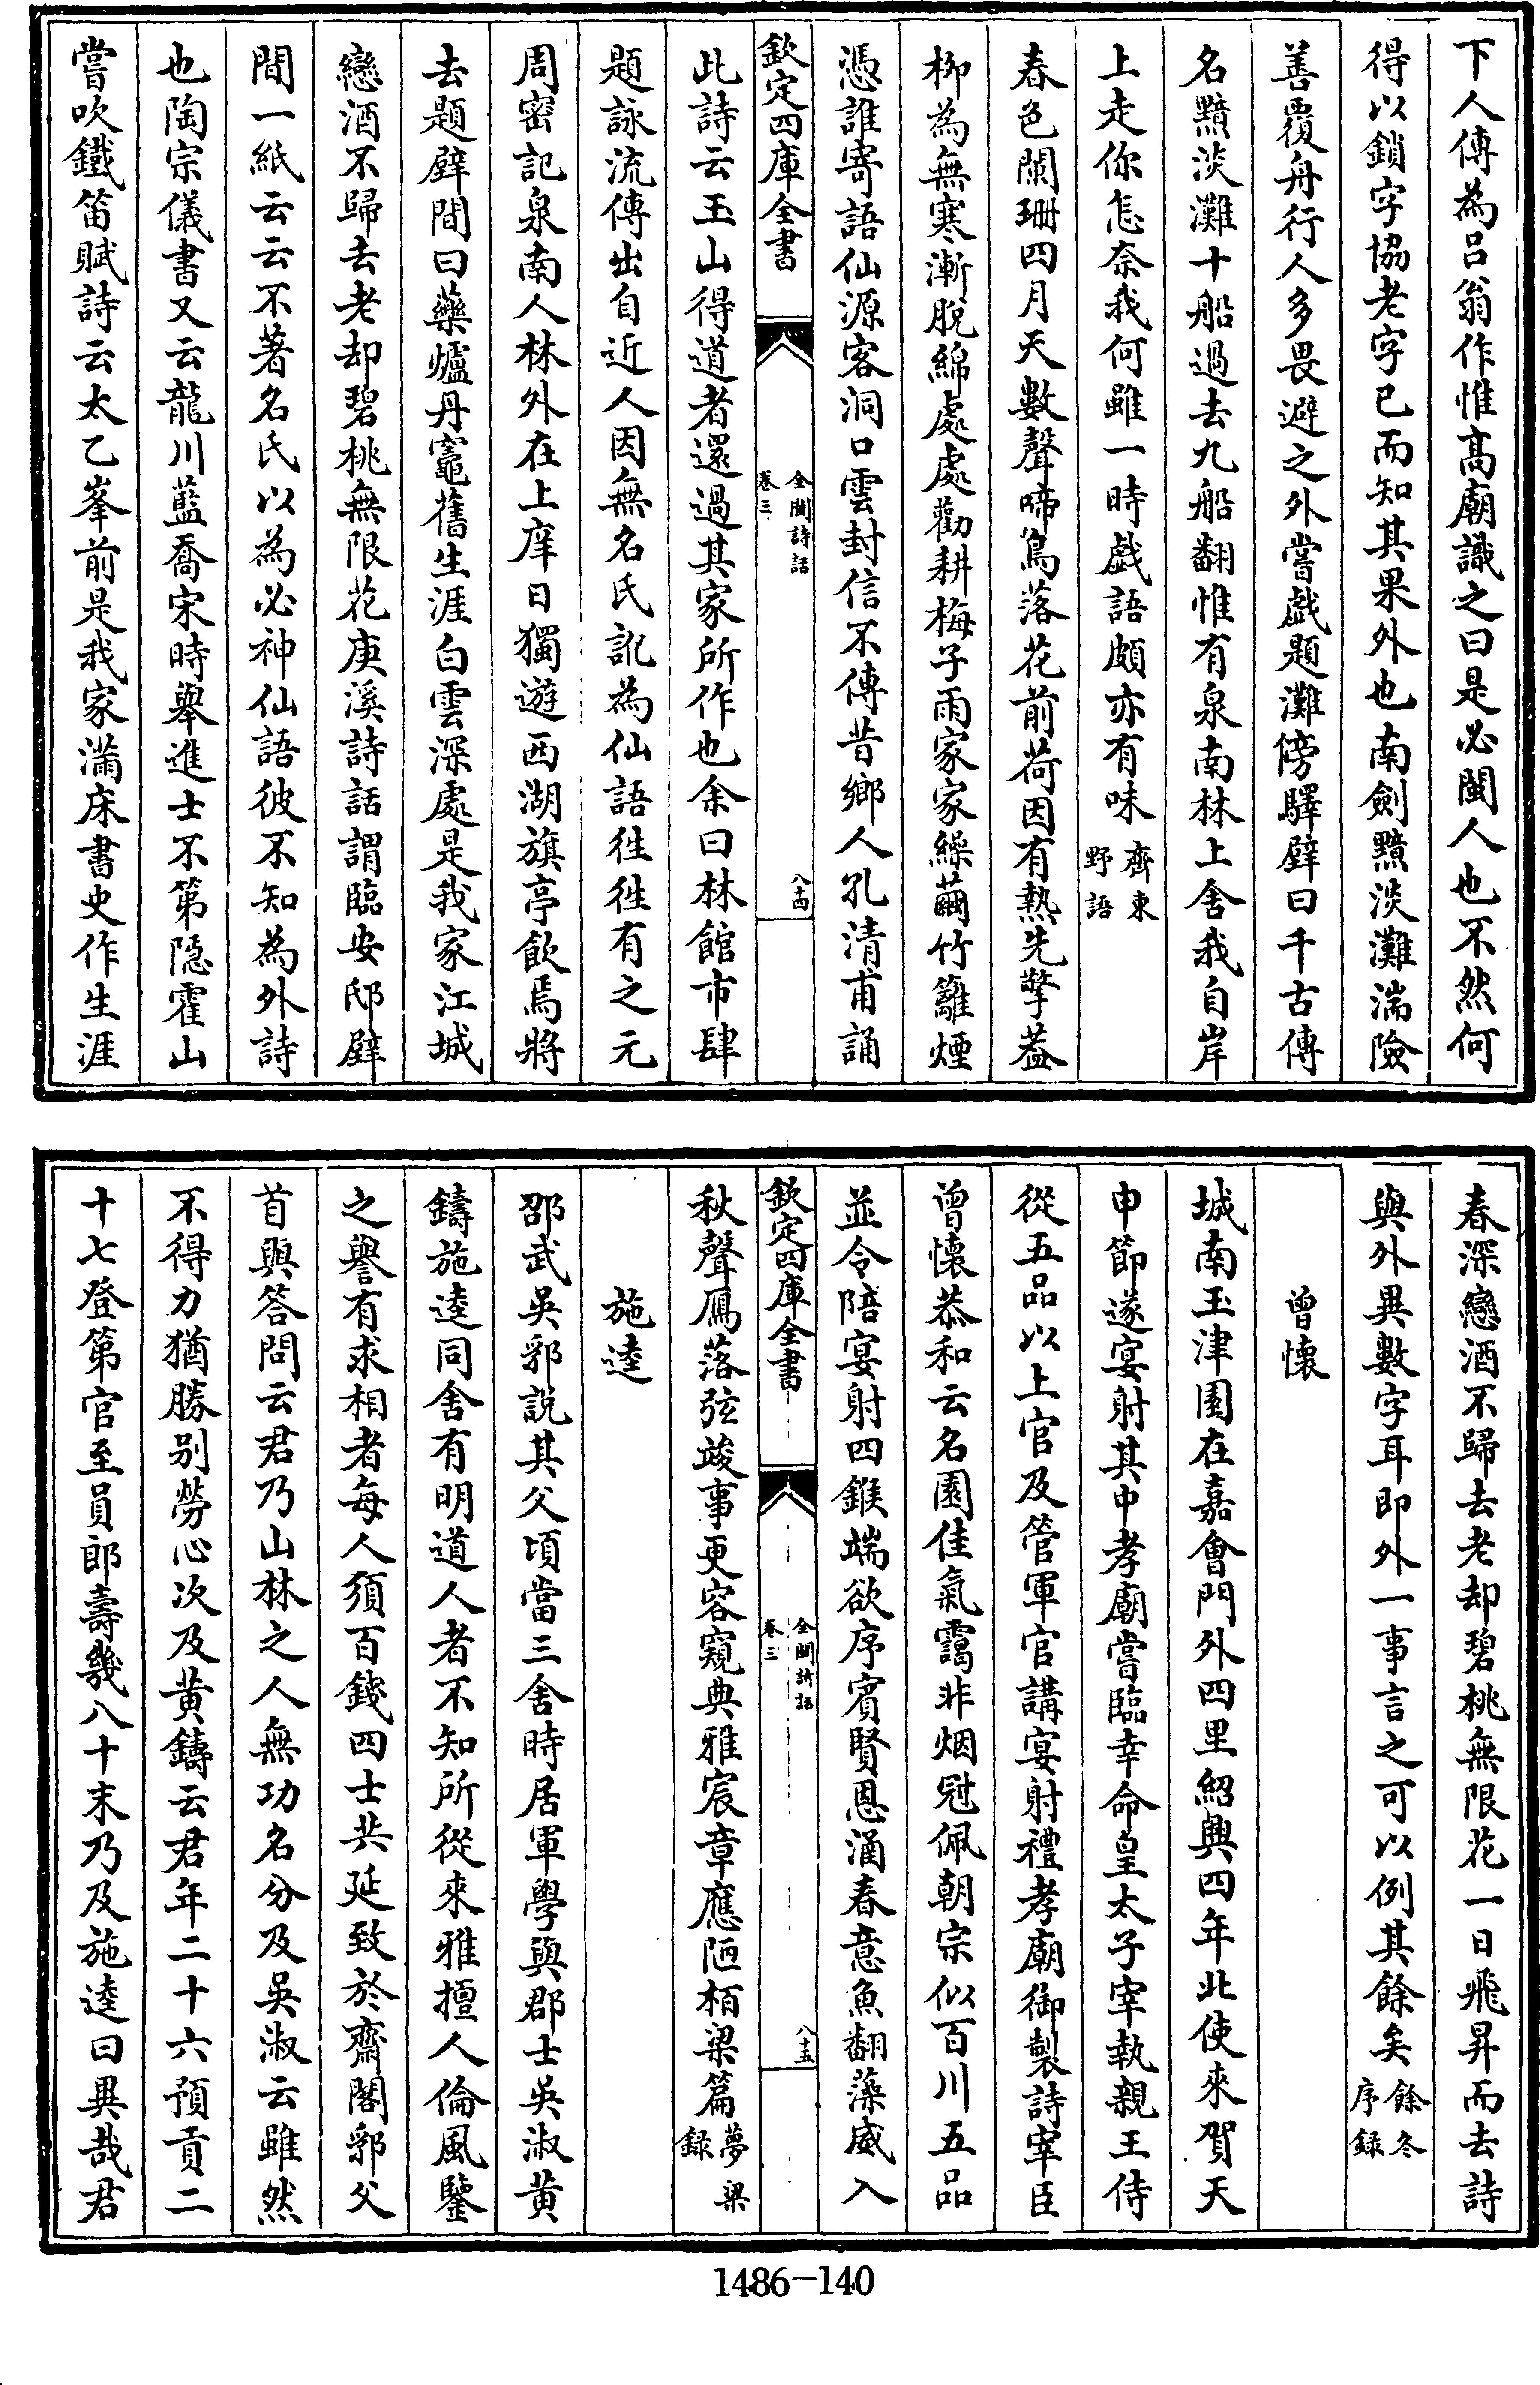 下人傳為呂翁作惟高廟識之曰是必閩人也不然何
得以鎖字協老字已而知其果外也南劍黯淡灘湍險
善覆舟行人多畏避之外嘗戲題灘傍驛壁曰千古傳
名黯淡灘十船過去九船翻惟有泉南林上舍我自岸
上走你怎奈我何雖一時戲語頗亦有味齊東野語
春色闌珊四月天數聲啼鳥落花前荷因有熱先擎葢
柳為無寒漸脫綿處處勸耕梅子雨家家繰繭竹籬煙
憑誰寄語仙源客洞口雲封信不傳昔鄉人孔清甫誦
欽定四庫全書 全閩詩話卷三 八十四
此詩云玉山得道者還過其家所作也余曰林館市肆
題詠流傳出自近人因無名氏訛為仙語徃徃有之元
周密記泉南人林外在上庠日獨遊西湖旗亭飲焉將
去題壁間曰藥爐丹竈舊生涯白雲深處是我家江城
戀酒不歸去老却碧桃無限花庚溪詩話謂臨安邸壁
間一紙云云不著名氏以為必神仙語彼不知為外詩
也陶宗儀書又云龍川藍喬宋時舉進士不第隱霍山
嘗吹鐵笛賦詩云太乙峯前是我家滿床書史作生涯
春深戀酒不歸去老却碧桃無限花一日飛昇而去詩
與外異數字耳即外一事言之可以例其餘矣餘冬序録
曾懷
城南玉津園在嘉會門外四里紹興四年北使來賀天
申節遂宴射其中孝廟嘗臨幸命皇太子宰執親王侍
從五品以上官及管軍官講宴射禮孝廟御製詩宰臣
曾懷恭和云名園佳氣靄非烟冠佩朝宗似百川五品
並令陪宴射四鍭端欲序賓賢恩涵春意魚翻藻威入
欽定四庫全書 全閩詩話卷三 八十五
秋聲鴈落弦竣事更容窺典雅宸章應陋栢梁篇夢梁録
施逵
邵武吳郛說其父頃當三舍時居軍學與郡士吳淑黄
鑄施逵同舍有明道人者不知所從來雅擅人倫風鑒
之譽有求相者每人須百錢四士共延致於齋閣郛父
首與答問云君乃山林之人無功名分及吳淑云雖然
不得力猶勝別勞心次及黄鑄云君年二十六預貢二
十七登第官至員郎壽幾八十末乃及施逵曰異哉君
1486-140